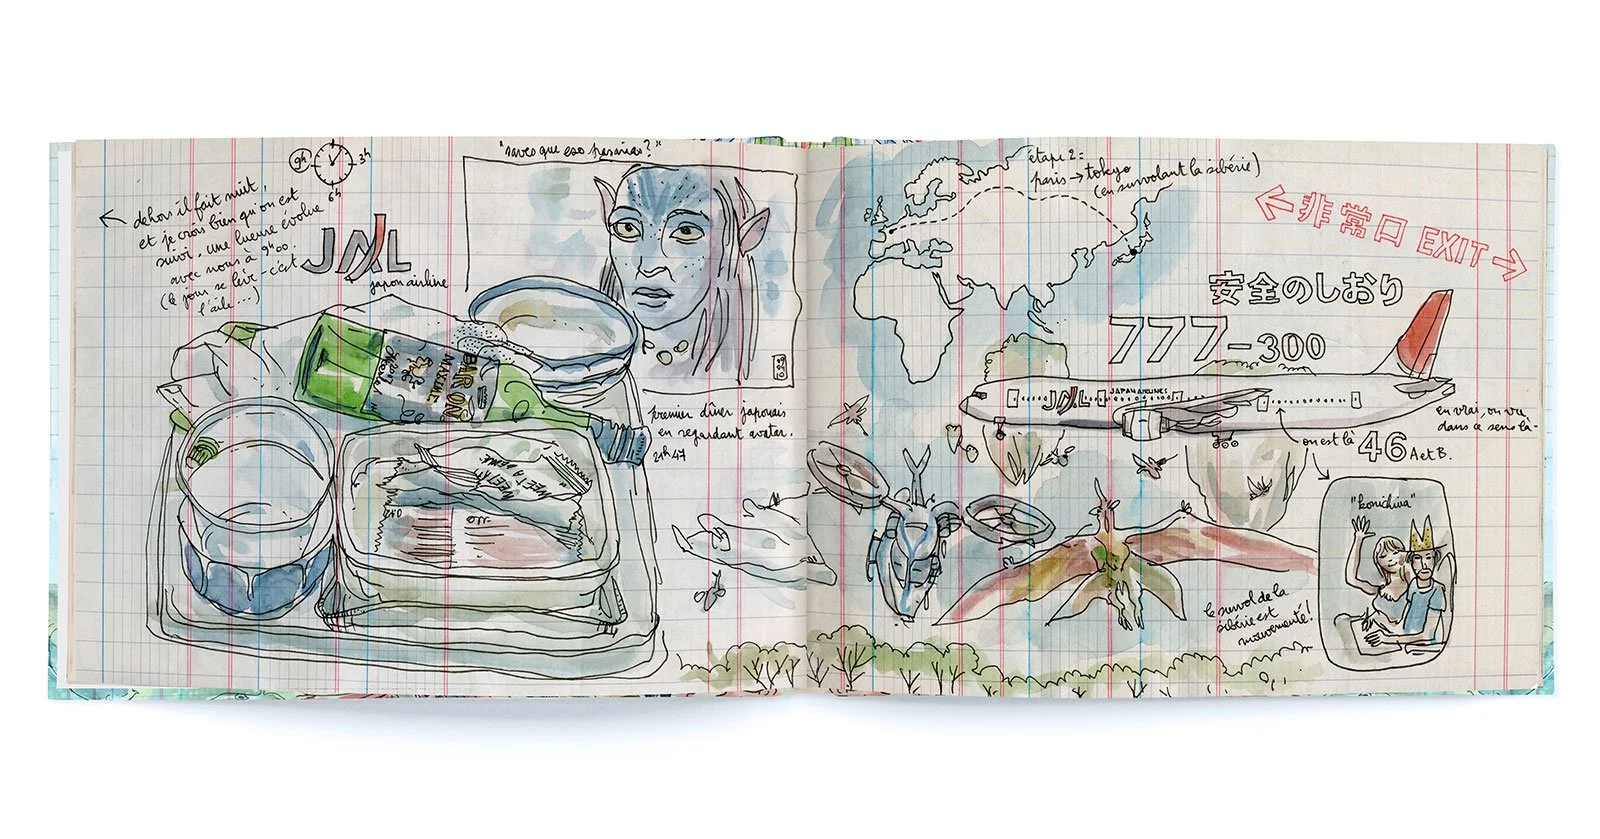 9h
3h
6h
dehors il fait nuit,
et je crois bien qu'on est
suivi, une lueure évolue
avec nous à 9h00.
(le jour se lève - c'est
l'aile...)
JAL
japon airline
"saves que eso pasaria?"
premier dîner japonais
en regardant avatar.
21h47
BARON
MAXIME
étape 2 =
paris → tokyo
(en survolant la sibérie)
非常口 EXIT
安全のしおり
777-300
JAL JAPAN AIRLINES
en vrai, on va
dans ce sens là -
on est là 46 A et B.
"konichiwa"
le survol de la
sibérie est
mouvementé!